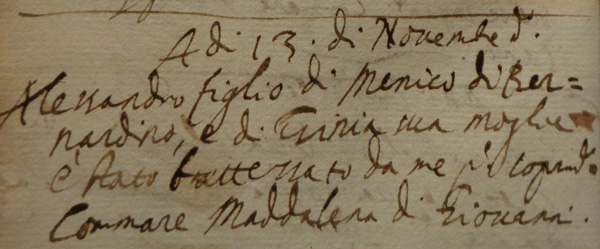 A di 13. di Novembe d.
Alessandro figlio di Menico di Ber=
nardino, e di sua moglie
è stato battezzato da me
Commare Maddalena di Giovanni.